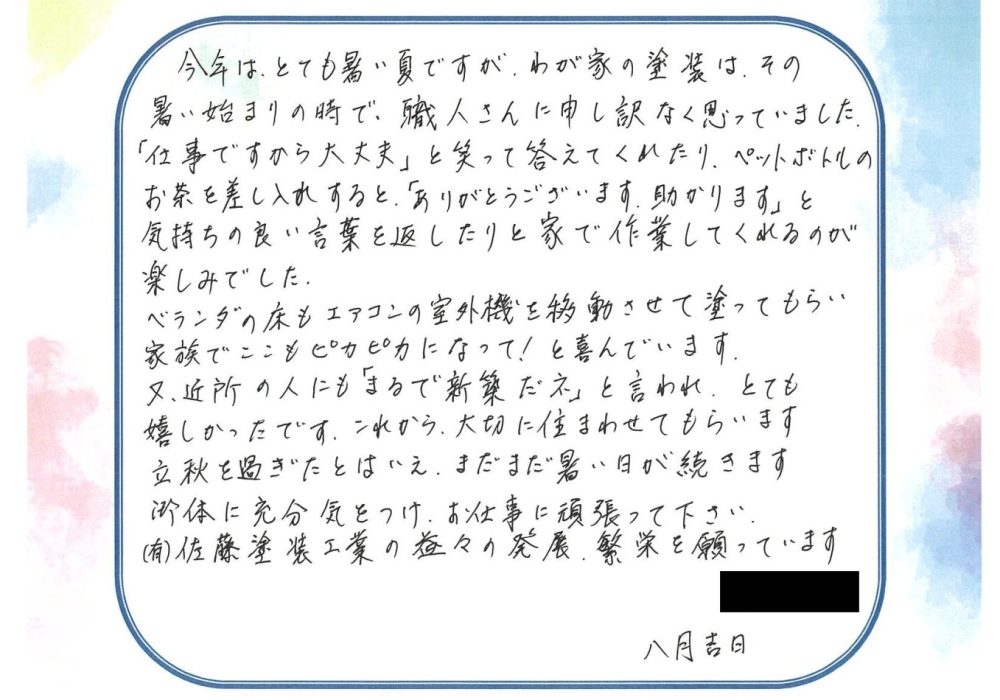 今年は、とても暑い夏ですが、わが家の塗装は、その
暑い始まりの時で、職人さんに申し訳なく思っていました。
「仕事ですから大丈夫」と笑って答えてくれたり、ペットボトルの
お茶を差し入れすると、「ありがとうございます。助かります」と
気持ちの良い言葉を返したりと家で作業してくれるのが
楽しみでした。
ベランダの床もエアコンの室外機を移動させて塗ってもらい
家族でここもピカピカになって！と喜んでいます。
又、近所の人にも「まるで新築だネ」と言われ、とても
嬉しかったです。これから、大切に住まわせてもらいます
立秋を過ぎたとはいえ、まだまだ暑い日が続きます
御体に充分気をつけ、お仕事に頑張って下さい。
(有)佐藤塗装工業の益々の発展、繁栄を願っています
八月吉日